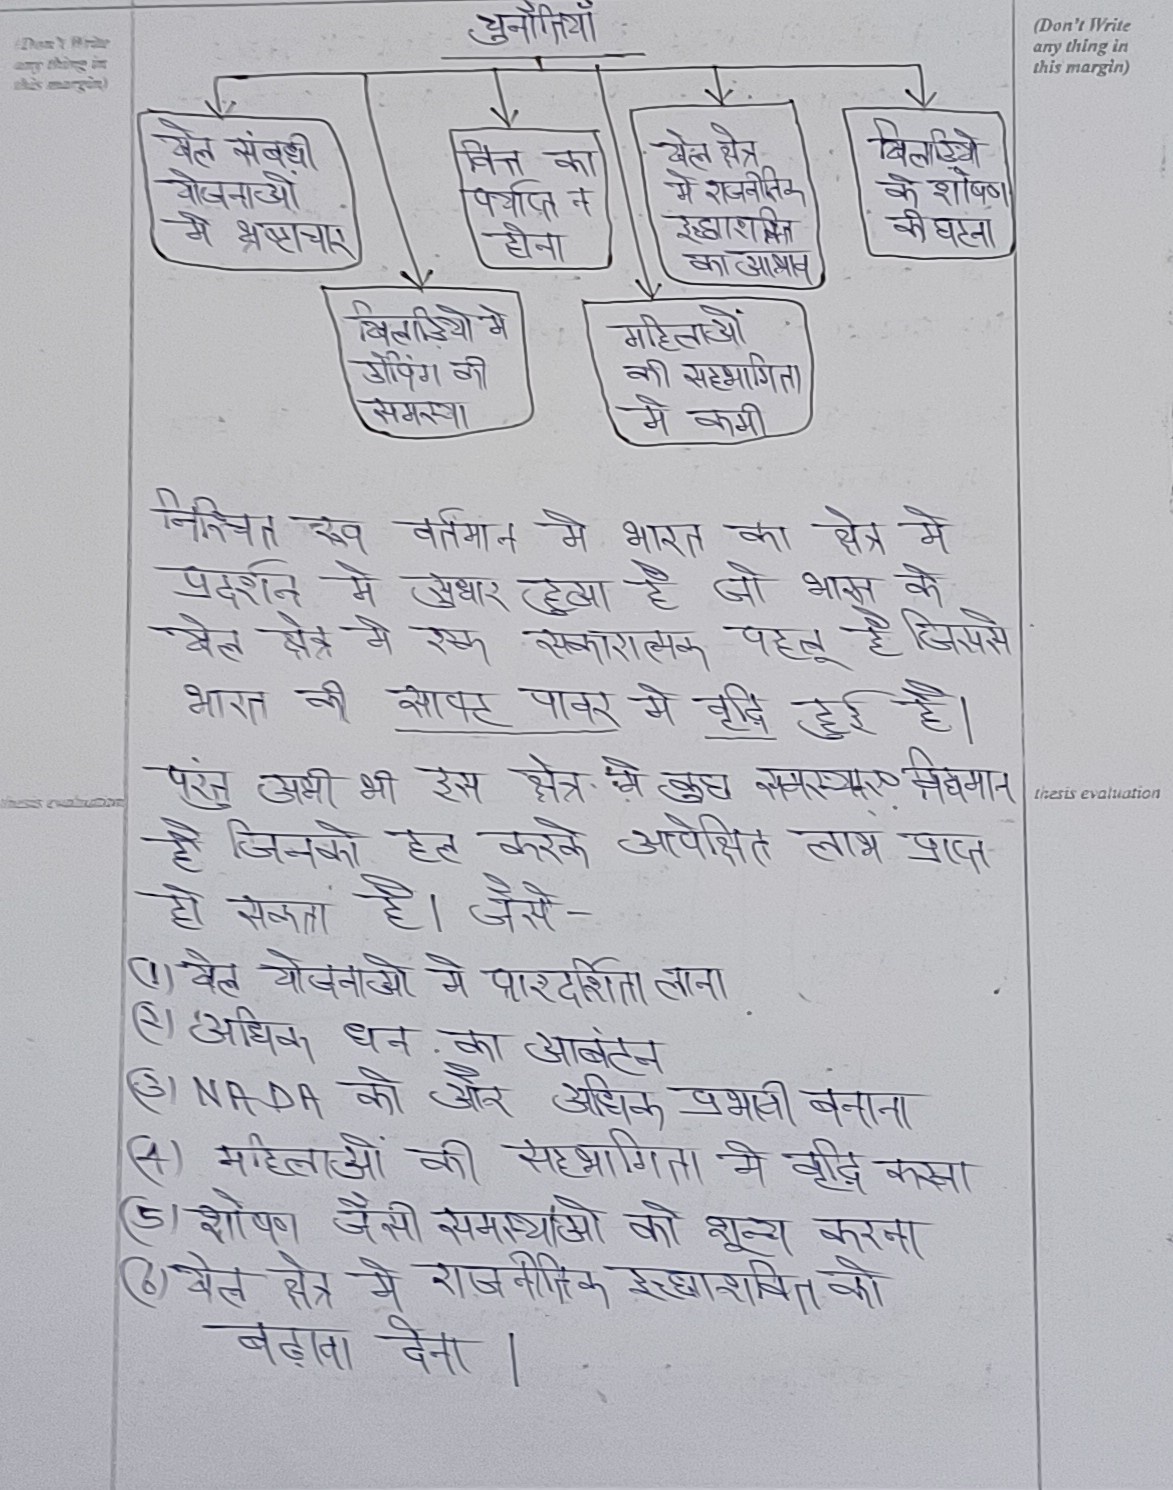 (Don't Write
any thing in
this margin)
चुनौतियाँ
(Don't Write
any thing in
this margin)
खेल संबधी
योजनाओं
मे भ्रष्टाचार
वित्त का
पर्याप्त न
होना
खेल क्षेत्र
मे राजनीतिक
इच्छाशक्ति
का आभाव
खिलाड़ियो
के शोषण
की घटना
खिलाड़ियो मे
डोपिंग की
समस्या
महिलाओं
की सहभागिता
मे कमी
निश्चित रूप वर्तमान मे भारत का क्षेत्र मे
प्रदर्शन मे सुधार हुआ है जो भारत के
खेल क्षेत्र मे एक सकारात्मक पहलू है जिससे
भारत की साफ्ट पावर मे वृद्दि हुई है।
परंतु अभी भी इस क्षेत्र मे कुछ समस्याए विद्यमान
है जिनको हल करके आपेक्षित लाभ प्राप्त
हो सकता है। जैसे -
(1) खेल योजनाओ मे पारदर्शिता लाना
(2) अधिक धन का आबंटन
(3) NADA को और अधिक प्रभावी बनाना
(4) महिलाओं की सहभागिता मे वृद्दि करना
(5) शोषण जैसी समस्याओ को शून्य करना
(6) खेल क्षेत्र मे राजनीतिक इच्छाशक्ति को
बढ़ावा देना।
thesis evaluation
thesis evaluation